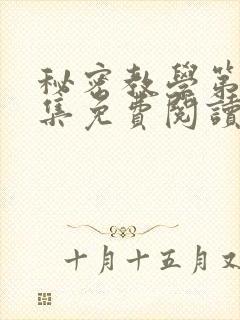 秘密教學第
集免費閱讀
十月十五月又